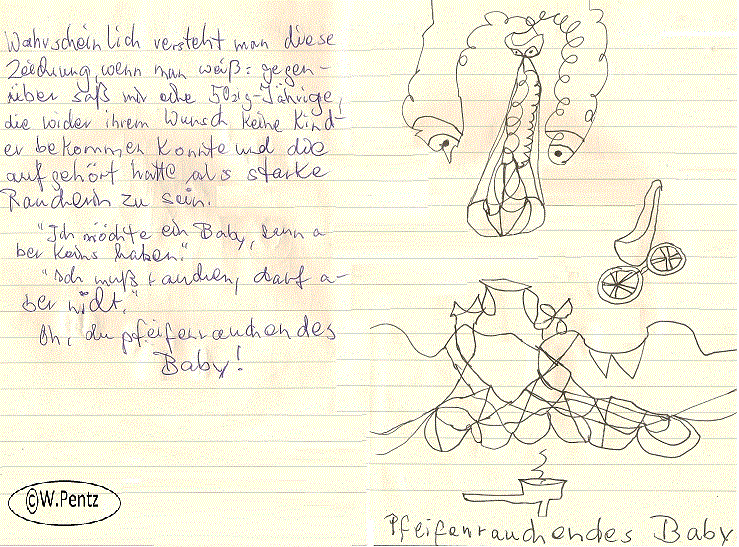 Wahrscheinlich versteht man diese
Zeichnung, wenn man weiß: gegen-
über saß mir eine 50zig-Jährige,
die wider ihrem Wunsch keine Kind-
er bekommen konnte und die
aufgehört hatte als starke
Raucherin zu sein.
"Ich möchte ein Baby, kann a-
ber keins haben."
"Ich muß rauchen, darf a-
ber nicht."
Oh, du pfeifenrauchendes
Baby!
©W.Pentz
Pfeifenrauchendes Baby